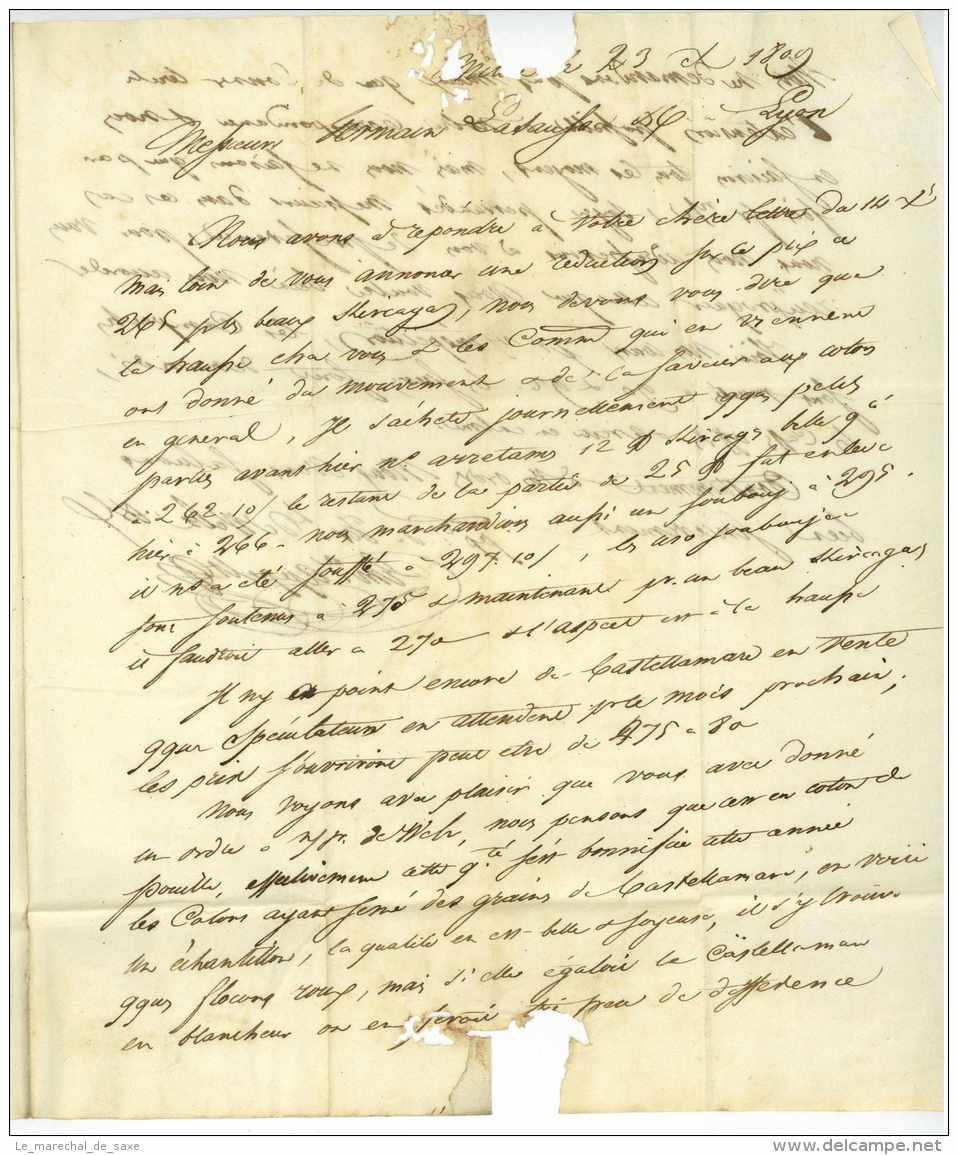 le 23 1809
Messieurs Germain Lyon
Nous avons à repondre à votre chère lettre du 14 Xe
mais loin de vous annoncer une reduction sur le prix a
265 plus beaux Kircagas, nous devons vous dire que
la hausse chez vous & les Comm qui en viennent
ont donné du mouvement & de la faveur aux cotons
en general, Il s'achete journellement qques petites
parties avant hier ns arretames 12 B Kircagas belle qté
a 262.10/ le restant de la partie de 25 B fut enlevé
hier à 266 nous marchandions aussi un Soubouj à 295
il ns a été soufflé à 297.10/ les uso Soubouja
sont soutenus à 275 & maintenant pr. un beau Kircagas
il faudroit aller a 270 & l'aspect est à la hausse
Il ny a point encore de Castellamare en vente
qques Spéculateurs en attendent pr le mois prochain,
les prix s'ouvriront peut etre de 475 a 80
Nous voyons avec plaisir que vous avez donné
un ordre à de nous pensons que c'est en coton de
pouille, effectivement cette qté s'est bonnifiée cette année
les Colons ayant semé des grains de Castellamare, en voici
un échantillon, la qualité en est belle & soyeuse, il s'y trouve
qques flocons roux, mais si elle égaloit le Castellamare
en blancheur on en feroit si peu de difference
Le_marechal_de_saxe
www.delcampe.net